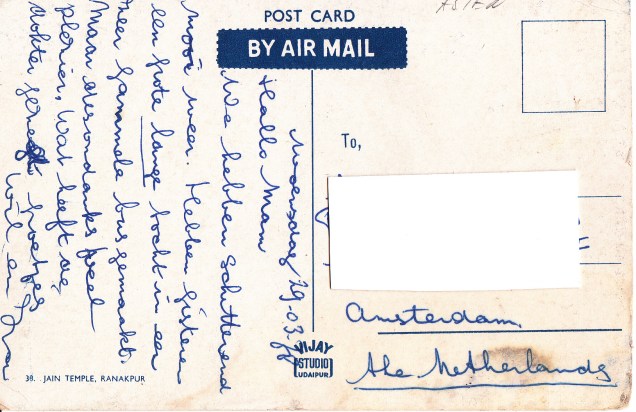 ASIEN
POST CARD
BY AIR MAIL
Woensdag 29-03
Hallo Mam
We hebben schitterend
mooi weer. Hebben gisteren
een grote lange tocht in een
zeer gammele bus gemaakt.
Maar desondanks veel
plezier. Wat heeft de
dokter gezegd Groetjes
Wil en
To,
Amsterdam
the Netherlands
VIJAY
STUDIO
UDAIPUR
38. JAIN TEMPLE, RANAKPUR